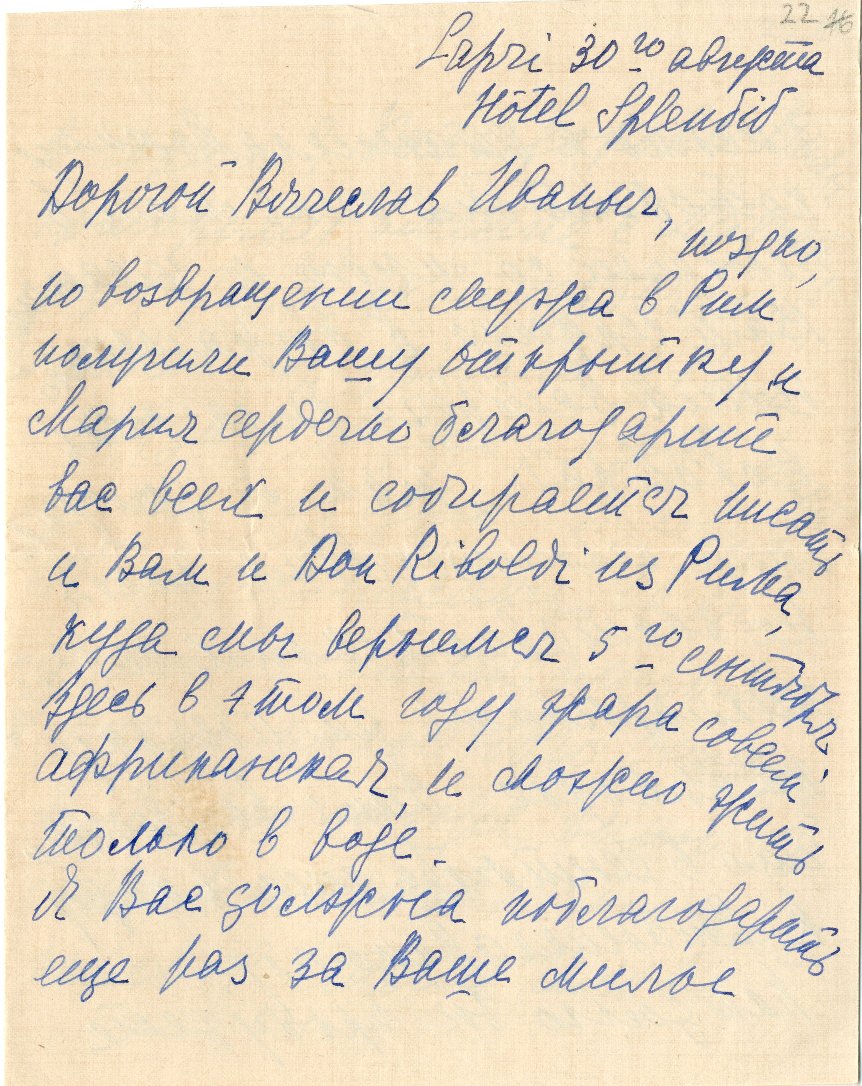 22 16
Capri 30го августа
Hôtel Splendid
Дорогой Вячеслав Иваныч,
поздно,
по возвращении мужа в Рим
получили Вашу открытку и
Мария сердечно благодарит
вас всех и собирается писать
и Вам и Don Riboldi из Рима,
куда мы вернемся 5го сентября.
Здесь в этом году жара совсем
африканская, и можно жить
только в воде.
Я Вас должна поблагодарить
еще раз за Ваше милое